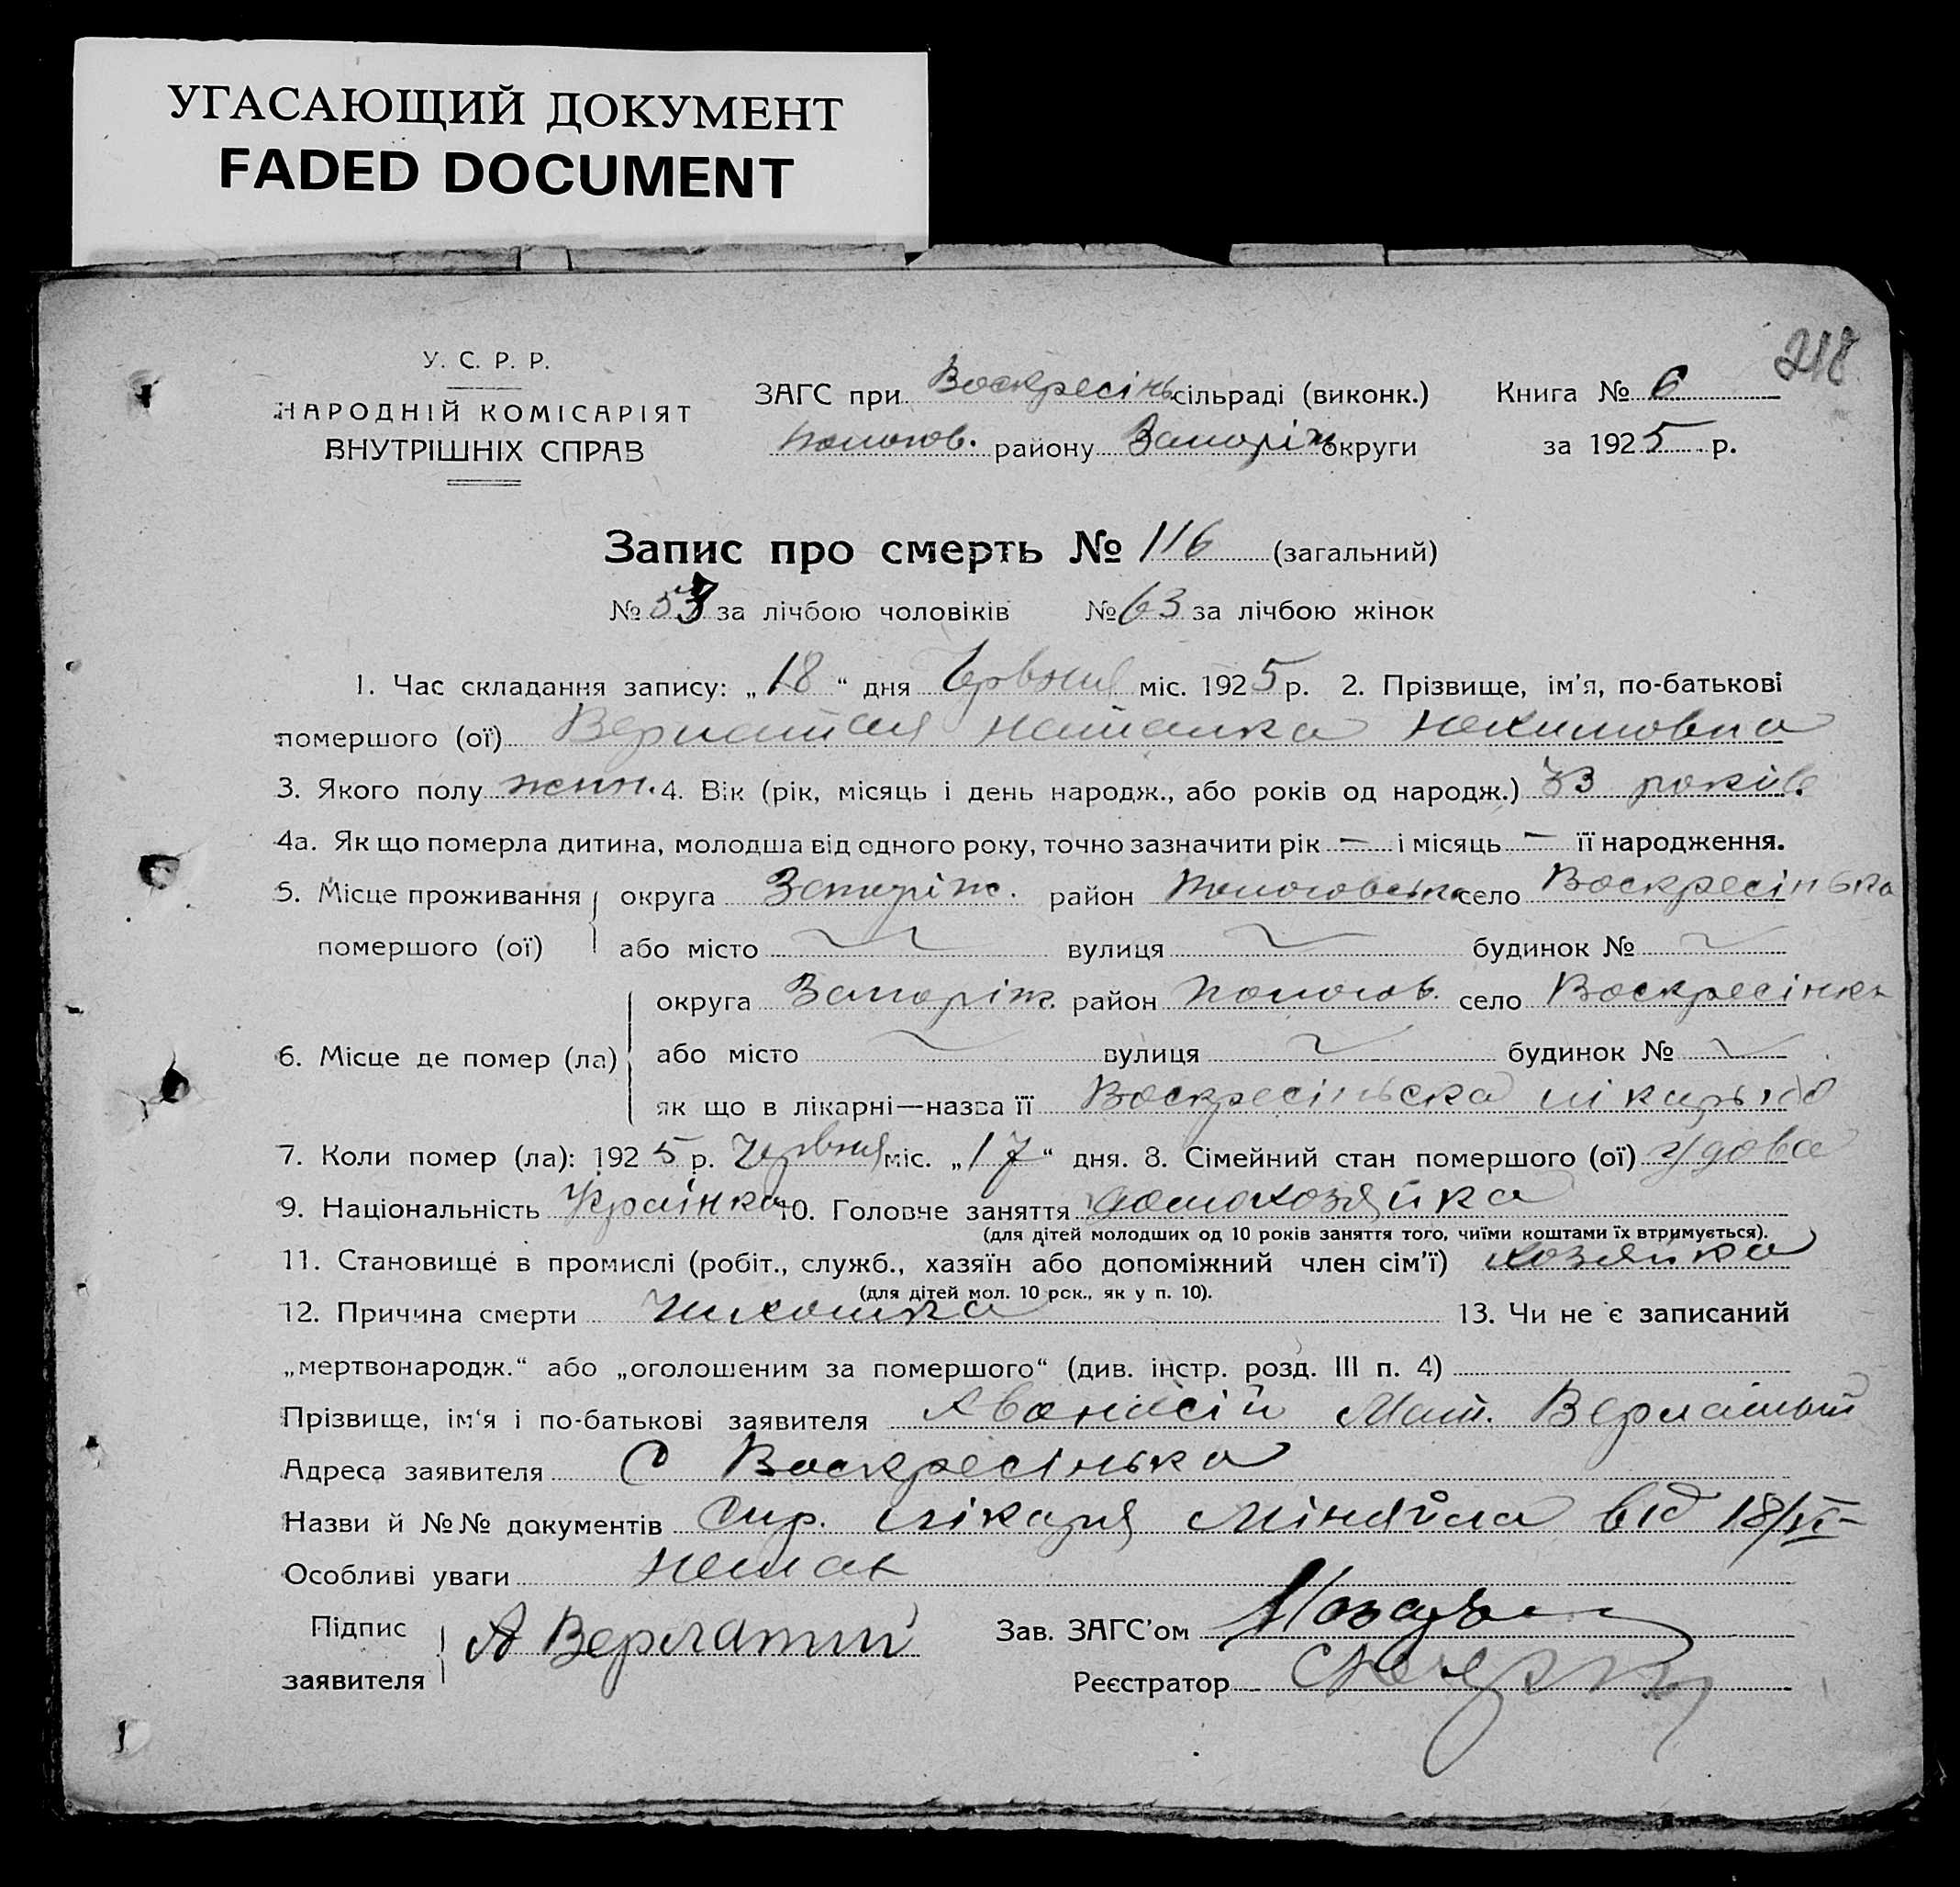 УГАСАЮЩИЙ ДОКУМЕНТ
FADED DOCUMENT
218
У. С. Р. Р.
НАРОДНІЙ КОМІСАРІЯТ
ВНУТРІШНІХ СПРАВ
ЗАГС при Воскресінь сільраді (виконк.) Книга № 6
Пологов. району Запоріж округи за 1925 р.
Запис про смерть № 116 (загальний)
№ 53 за лічбою чоловіків № 63 за лічбою жінок
1. Час складання запису: „18“ дня Червня міс. 1925 р. 2. Прізвище, ім'я, по-батькові
помершого (ої) Верлатая Наталка
3. Якого полу жин. 4. Вік (рік, місяць і день народж., або років од народж.) років
4а. Як що померла дитина, молодша від одного року, точно зазначити рік — і місяць — її народження.
5. Місце проживання округа Запоріж. район Пологовська село Воскресінька
помершого (ої) або місто вулиця будинок №
округа Запоріж. район Пологов. село Воскресінка
6. Місце де помер (ла) або місто вулиця будинок №
як що в лікарні—назва її Воскресінська
7. Коли помер (ла): 1925 р. Червня міс. „17“ дня. 8. Сімейний стан помершого (ої) удова
9. Національність Українка 10. Головче заняття домохозяйка
(для дітей молодших од 10 років заняття того, чиїми коштами їх втримується).
11. Становище в промислі (робіт., служб., хазяїн або допоміжний член сім'ї) хозяйка
(для дітей мол. 10 рок., як у п. 10).
12. Причина смерти 13. Чи не є записаний
„мертвонародж.“ або „оголошеним за помершого“ (див. інстр. розд. III п. 4)
Прізвище, ім'я і по-батькові заявителя Авонасій Мат. Верлатый
Адреса заявителя С Воскресінька
Назви й №№ документів спр. лікаря Міняйла від 18/VI
Особливі уваги немає
Підпис
заявителя А Верлатий
Зав. ЗАГС'ом
Реєстратор